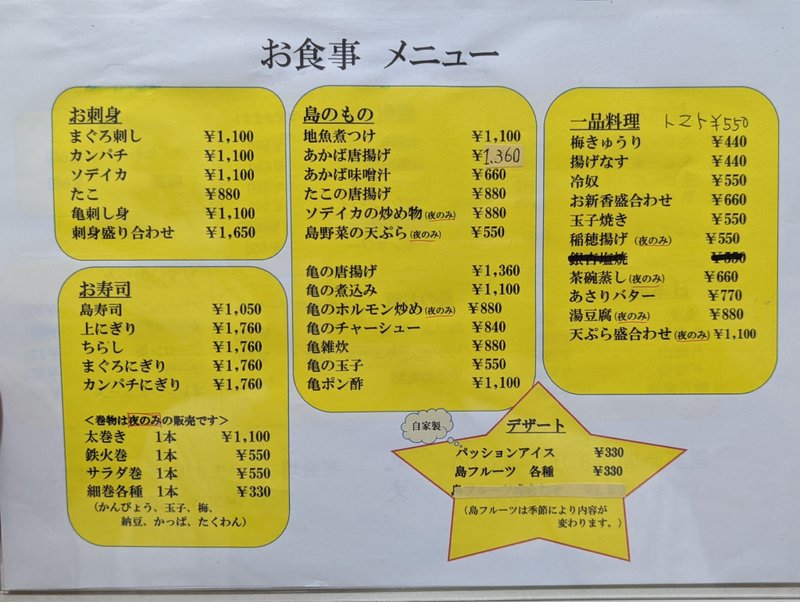 お食事 メニュー
お刺身
まぐろ刺し ¥1,100
カンパチ ¥1,100
ソデイカ ¥1,100
たこ ¥880
亀刺し身 ¥1,100
刺身盛り合わせ ¥1,650
お寿司
島寿司 ¥1,050
上にぎり ¥1,760
ちらし ¥1,760
まぐろにぎり ¥1,760
カンパチにぎり ¥1,760
＜巻物は夜のみの販売です＞
太巻き 1本 ¥1,100
鉄火巻 1本 ¥550
サラダ巻 1本 ¥550
細巻各種 1本 ¥330
（かんぴょう、玉子、梅、
納豆、かっぱ、たくわん）
島のもの
地魚煮つけ ¥1,100
あかば唐揚げ ¥1,360
あかば味噌汁 ¥660
たこの唐揚げ ¥880
ソデイカの炒め物（夜のみ） ¥880
島野菜の天ぷら（夜のみ） ¥550
亀の唐揚げ ¥1,360
亀の煮込み ¥1,100
亀のホルモン炒め（夜のみ） ¥880
亀のチャーシュー ¥840
亀雑炊 ¥880
亀の玉子 ¥550
亀ポン酢 ¥1,100
一品料理 トマト¥550
梅きゅうり ¥440
揚げなす ¥440
冷奴 ¥550
お新香盛合わせ ¥660
玉子焼き ¥550
稲穂揚げ（夜のみ） ¥550
茶碗蒸し（夜のみ） ¥660
あさりバター ¥770
湯豆腐（夜のみ） ¥880
天ぷら盛合わせ（夜のみ） ¥1,100
自家製
デザート
パッションアイス ¥330
島フルーツ 各種 ¥330
（島フルーツは季節により内容が
変わります。）